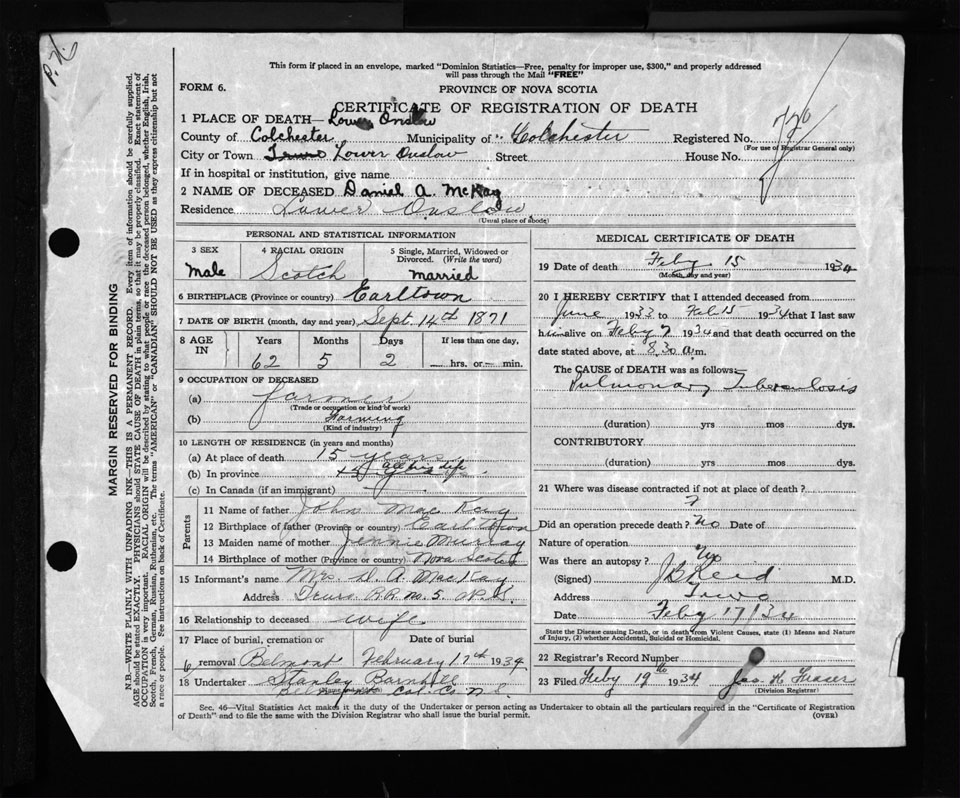 P.H.
This form if placed in an envelope, marked "Dominion Statistics—Free, penalty for improper use, $300," and properly addressed
will pass through the Mail "FREE"
FORM 6.
PROVINCE OF NOVA SCOTIA
CERTIFICATE OF REGISTRATION OF DEATH
1 PLACE OF DEATH—Lower Onslow
County of Colchester Municipality of Colchester Registered No.
(For use of Registrar General only)
City or Town Truro Lower Onslow Street House No.
If in hospital or institution, give name
2 NAME OF DECEASED Daniel A. McKay
Residence Lower Onslow
(Usual place of abode)
PERSONAL AND STATISTICAL INFORMATION
3 SEX 4 RACIAL ORIGIN 5 Single, Married, Widowed or
Divorced. (Write the word)
Male Scotch married
6 BIRTHPLACE (Province or country) Earltown
7 DATE OF BIRTH (month, day and year) Sept. 14th 1871
8 AGE IN Years Months Days If less than one day,
62 5 2 hrs. or min.
9 OCCUPATION OF DECEASED
(a) farmer
(Trade or occupation or kind of work)
(b) Farming
(Kind of industry)
10 LENGTH OF RESIDENCE (in years and months)
(a) At place of death 15 years
(b) In province all his life
(c) In Canada (if an immigrant)
Parents
11 Name of father John Mac Kay
12 Birthplace of father (Province or country) Earltown
13 Maiden name of mother Jennie Murray
14 Birthplace of mother (Province or country) Nova Scotia
15 Informant's name Mrs. D. A. MacKay
Address Truro R.R. no. 5
16 Relationship to deceased wife
17 Place of burial, cremation or Date of burial
removal Belmont February 17th 1934
18 Undertaker Stanley Barnhill
Col. Co. N.S.
MEDICAL CERTIFICATE OF DEATH
19 Date of death Feby 15 1934
(Month, day and year)
20 I HEREBY CERTIFY that I attended deceased from
June 1933 to Feb 15 1934 that I last saw
him alive on Feby 7 1934 and that death occurred on the
date stated above, at 8.30 a.m.
The CAUSE OF DEATH was as follows:
Pulmonary Tuberculosis
(duration) yrs mos dys.
CONTRIBUTORY
(duration) yrs mos dys.
21 Where was disease contracted if not at place of death?
?
Did an operation precede death? No Date of
Nature of operation
Was there an autopsy? No
(Signed) J B Reid M.D.
Address Truro
Date Feby 17/34
State the Disease causing Death, or in death from Violent Causes, state (1) Means and Nature
of Injury, (2) whether Accidental, Suicidal or Homicidal.
22 Registrar's Record Number
23 Filed Feby 19th 1934 Jas. K. Fraser
(Division Registrar)
Sec. 46—Vital Statistics Act makes it the duty of the Undertaker or person acting as Undertaker to obtain all the particulars required in the "Certificate of Registration
of Death" and to file the same with the Division Registrar who shall issue the burial permit. (OVER)
MARGIN RESERVED FOR BINDING
N.B.—WRITE PLAINLY WITH UNFADING INK—THIS IS A PERMANENT RECORD. Every item of information should be carefully supplied.
AGE should be stated EXACTLY. PHYSICIANS should STATE CAUSE OF DEATH in plain terms, so that it may be properly classified. Exact statement of
OCCUPATION is very important. RACIAL ORIGIN will be described by stating to what people or race the deceased person belonged, whether English, Irish,
Scotch, French, German, Russian, Ruthenian, etc. The terms "AMERICAN" or "CANADIAN" SHOULD NOT BE USED as they express citizenship but not
a race or people. See instructions on back of Certificate.